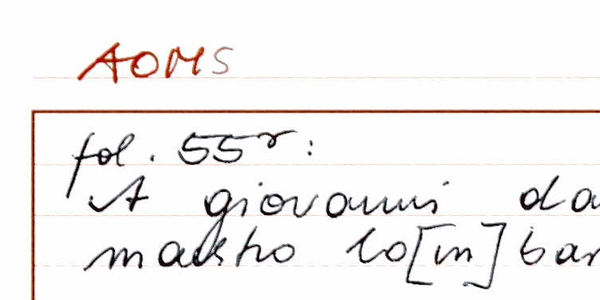 AOMS
fol. 55r:
A giovanni da
maestro lo[m]bar